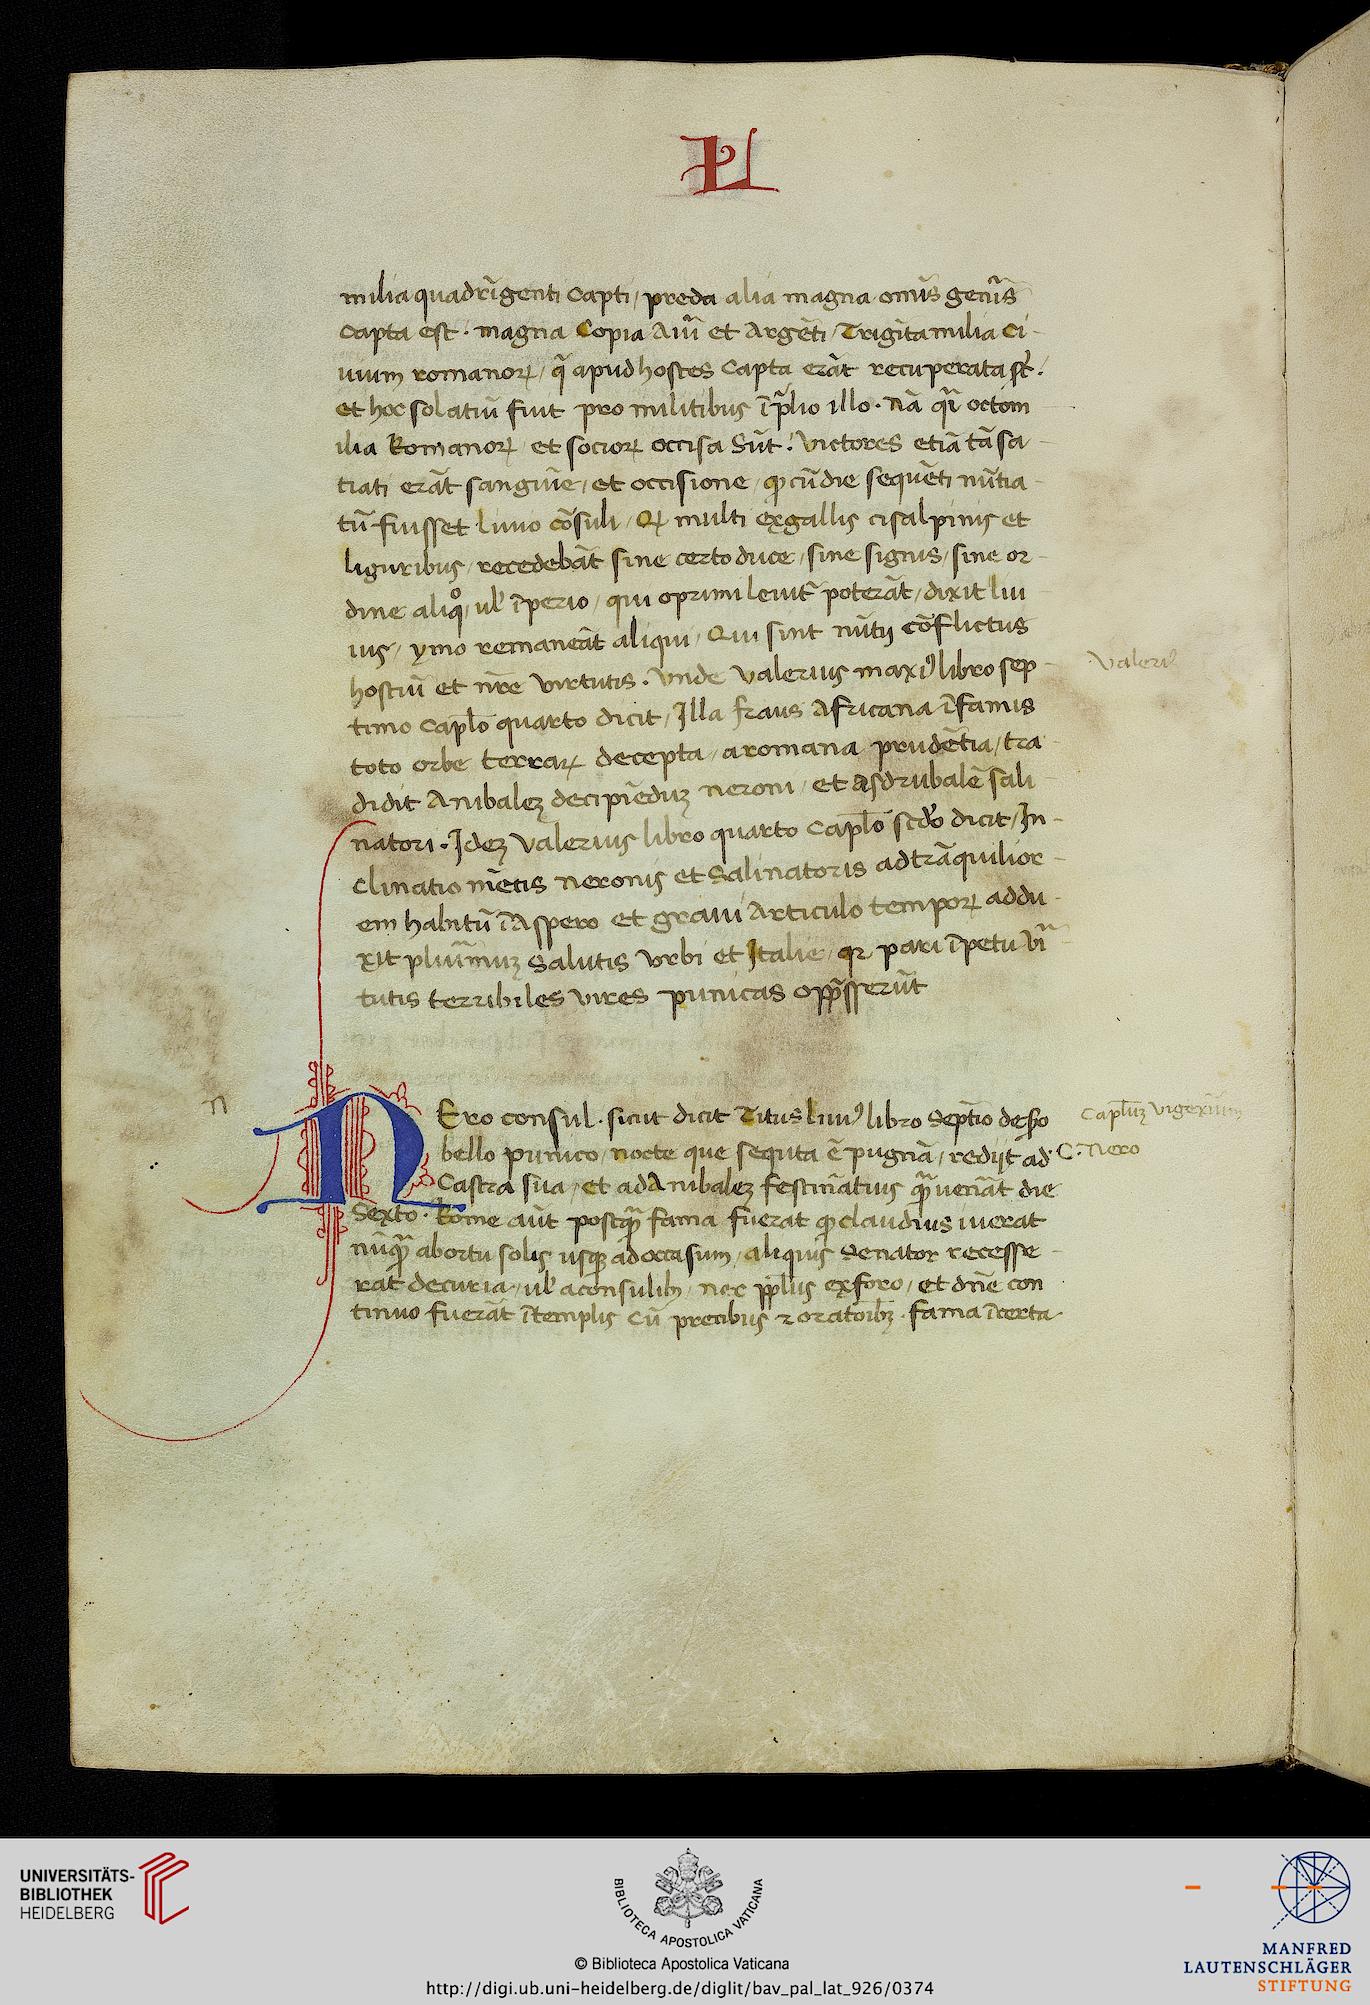 L
milia quadrĩgenti capti / preda alia magna om̃is gen̑is
capta est · magna Copia Aur̃i et Argẽti / Trigĩta milia ci-
uium romanoꝝ / q̃ apud hostes capta erãt recuperata st̃ ·
et hoc solatiũ fuit pro militibus ĩ p̃lio illo · nã qr̃i octom
ilia Romanoꝝ et socioꝝ occisa sũt · victores etiã tã sa-
tiati erãt sanguĩe / et occisione / ꝙ cũ die sequẽti nũtia-
tũ fuisset liuio cõsuli / Qꝫ multi ex gallis cisalpinis et
liguribus / recedebãt sine certo duce / sine signis / sine or-
dine aliqͦ / ul' ĩperio / qui oprimi leuit̃ poterãt / dixit liui
ius / ymo remaneãt aliqui / Qui sint nũtij cõflictus
hostiũ et nr̃e virtutis · vnde Valerius maxi⁹ libro sep-
timo capl̃o quarto dicit / Illa fraus Africana ĩfamis
toto orbe terraꝝ decepta / a romana prudẽtia / tra-
didit Anibaleꝫ decipiẽduꝫ neroni / et asdrubalẽ sali-
natori · Ideꝫ Valerius libro quarto capl̃o scd̃o dicit / In-
clinatio mẽtis neronis et Salinatoris ad trãquilior-
em habitũ ĩ Aspero et graui Articulo tempoꝝ addu-
xit plur̃imuꝫ Salutis vrbi et Italie / qꝛ pari ĩpetu vĩr
tutis terribiles vires punicas opp̃sserũt
NEro consul · sicut dicit Titus liui⁹ libro septĩo de scd̃o
bello punico / nocte que sequta ẽ pugnã / redijt ad
Castra sua / et ad Anibaleꝫ festinãtius q̃ȝ ueniãt die
Sexto · Rome aũt postq̃ȝ fama fuerat ꝙ claudius iuerat
nũq̃ȝ ab ortu solis usqꝫ ad occasum / aliquis Senator recesse-
rat de curia / ul' a consulibȝ / nec pp̃lus ex foro / et dñe con
tinuo fuerãt ĩ templis cũ precibus ⁊ oratõibȝ · fama ĩcerta
Valeri⁹
n
Capl̃uꝫ vigexĩum
C · Nero
UNIVERSITÄTS-
BIBLIOTHEK
HEIDELBERG
BIBLIOTECA APOSTOLICA VATICANA
© Biblioteca Apostolica Vaticana
http://digi.ub.uni-heidelberg.de/diglit/bav_pal_lat_926/0374
MANFRED
LAUTENSCHLÄGER
STIFTUNG